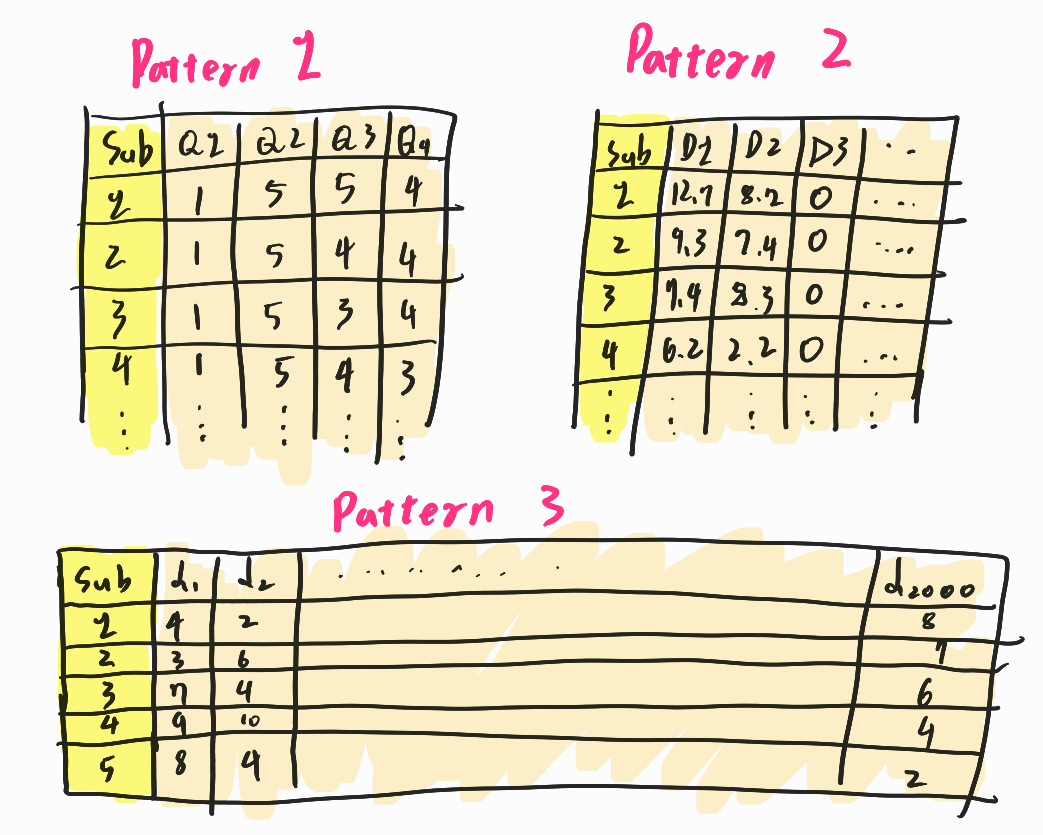 Pattern 1
Sub Q1 Q2 Q3 Q4
1 1 5 5 4
2 1 5 4 4
3 1 5 3 4
4 1 5 4 3
Pattern 2
Sub D1 D2 D3 ...
1 12.7 8.2 0 ....
2 9.3 7.4 0 ....
3 7.4 8.3 0 ...
4 6.2 2.2 0 ...
Pattern 3
Sub d1 d2 ......... d2000
1 4 2 8
2 3 6 7
3 7 4 6
4 9 10 4
5 8 4 2